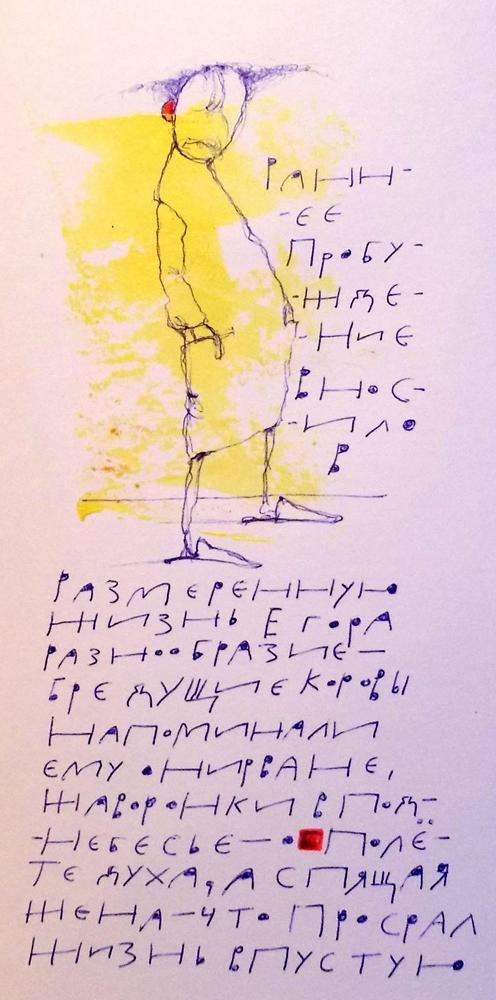 РАНН-
-ЕЕ
ПРОБУ-
-ЖДЕ-
-НИЕ
ВНОС-
-ИЛО
В
РАЗМЕРЕННУЮ
ЖИЗНЬ ЕГОРА
РАЗНООБРАЗИЕ —
БРЕДУЩИЕ КОРОВЫ
НАПОМИНАЛИ
ЕМУ О НИРВАНЕ,
ЖАВОРОНКИ В ПОД-
-НЕБЕСЬЕ — О ПОЛЁ-
ТЕ ДУХА, А СПЯЩАЯ
ЖЕНА — ЧТО ПРОСРАЛ
ЖИЗНЬ ВПУСТУЮ